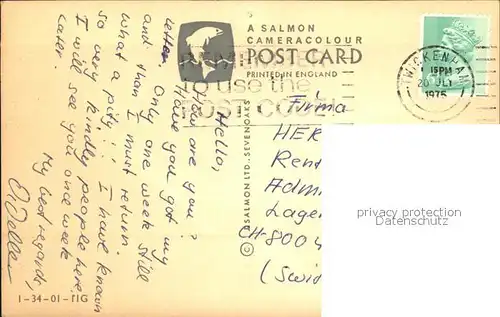 A SALMON
CAMERACOLOUR
POST CARD
PRINTED IN ENGLAND
use the
POST CODE
TWICKENHAM
15PM
20 JLY
1976
Hello,
How are you?
Have you got my
letter only one week still
and than I must return.
What a pity!! I have known
so very kindly people here.
I will see you once week
later.
My best regards,
© J. SALMON LTD., SEVENOAKS
Firma
HER
Rent
Adm
Lager
CH-8004
(Swi
privacy protection
Datenschutz
1-34-01-11G